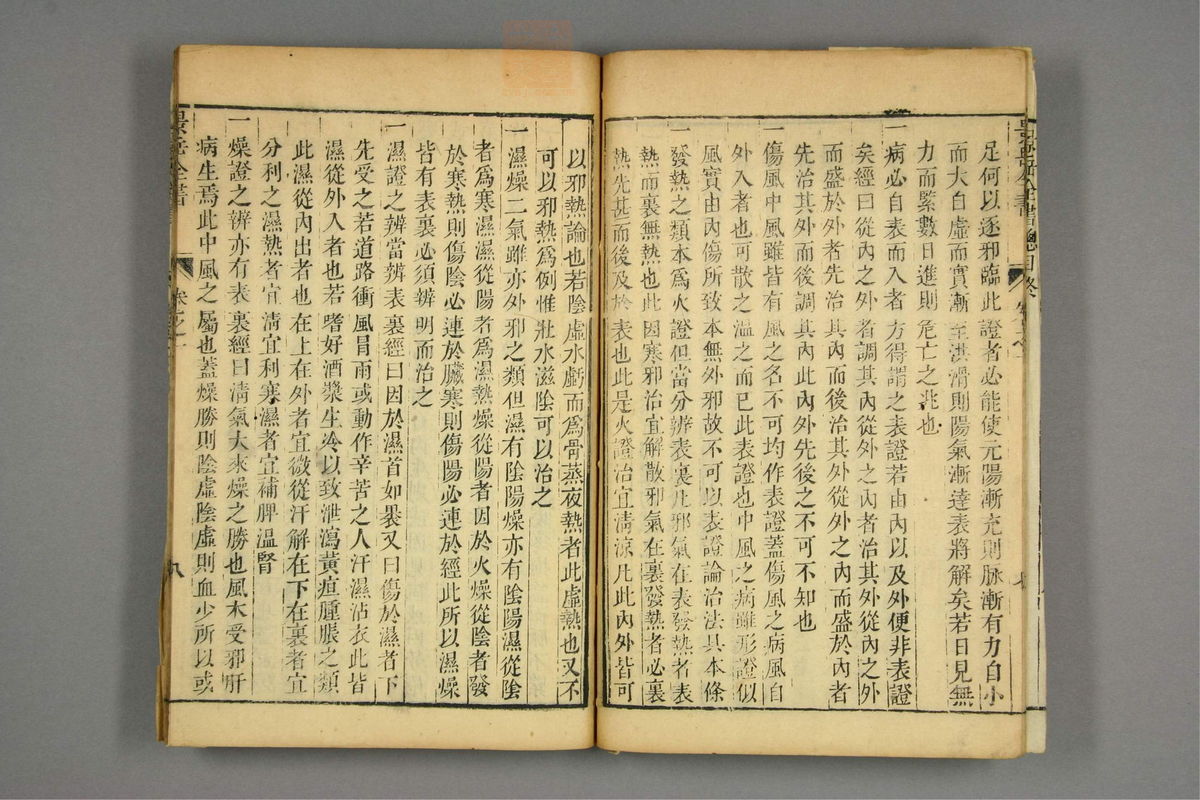 足何以逐邪臨此證者必能使元陽漸充則脉漸有力自小
而大自虛而實漸至洪滑則陽氣漸達表將解矣若日見無
力而緊數日進則危亡之兆也
一病必自表而入者方得謂之表證若由內以及外便非表證
矣經曰從內之外者調其內從外之內者治其外從內之外
而盛於外者先治其內而後治其外從外之內而盛於內者
先治其外而後調其內此內外先後之不可不知也
一傷風中風雖皆有風之名不可均作表證蓋傷風之病風自
外入者也可散之溫之而已此表證也中風之病雖形證似
風實由內傷所致本無外邪故不可以表證論治法具本條
一發熱之類本為火證但當分辨表裏凡邪氣在表發熱者表
熱而裏無熱也此因寒邪治宜解散邪氣在裏發熱者必裏
熱先甚而後及於表也此是火證治宜清涼凡此內外皆可
以邪熱論也若陰虛水虧而為骨蒸夜熱者此虛熱也又不
可以邪熱為例惟壯水滋陰可以治之
一濕燥二氣雖亦外邪之類但濕有陰陽燥亦有陰陽濕從陰
者為寒濕濕從陽者為濕熱燥從陽者因於火燥從陰者發
於寒熱則傷陰必連於臟寒則傷陽必連於經此所以濕燥
皆有表裏必須辨明而治之
一濕證之辨當辨表裏經曰因於濕首如裹又曰傷於濕者下
先受之若道路衝風冒雨或動作辛苦之人汗濕沾衣此皆
濕從外入者也若嗜好酒漿生冷以致泄瀉黃疸腫脹之類
此濕從內出者也在上在外者宜微從汗解在下在裏者宜
分利之濕熱者宜清宜利寒濕者宜補脾溫腎
一燥證之辨亦有表裏經曰清氣大來燥之勝也風木受邪肝
病生焉此中風之屬也蓋燥勝則陰虛陰虛則血少所以或
景岳全書
卷之一
九